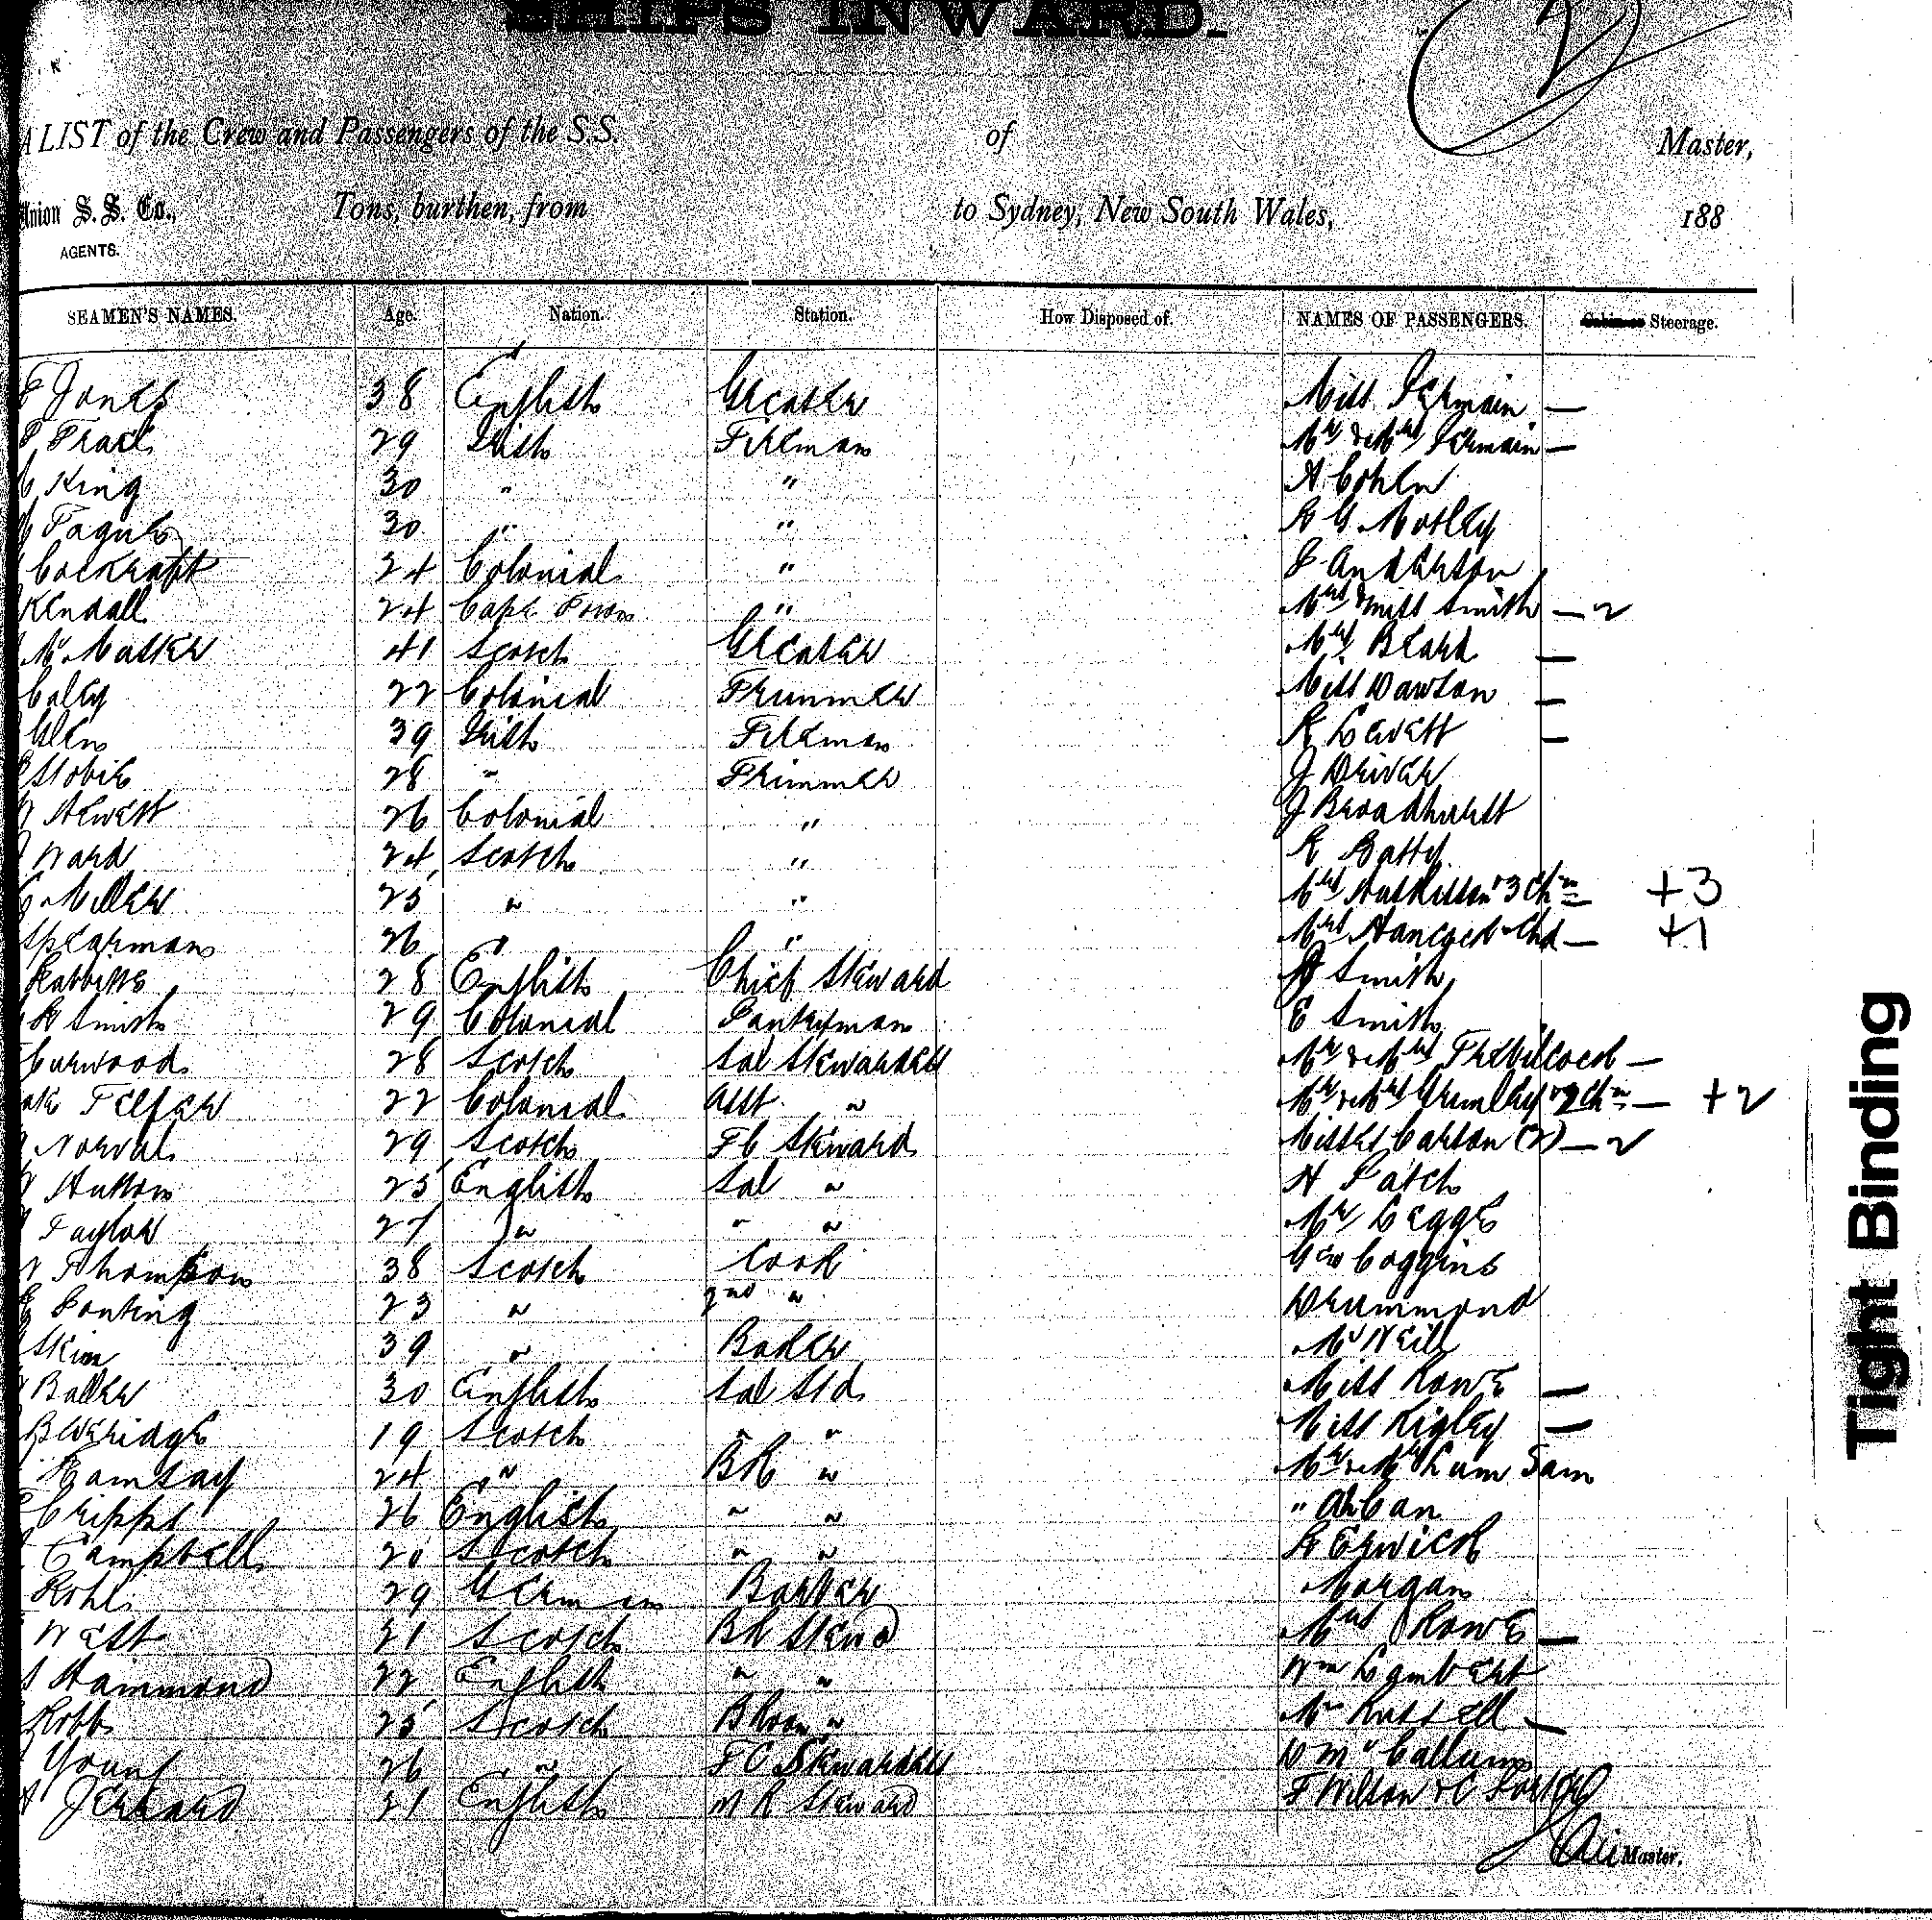 SHIPS INWARD.
A LIST of the Crew and Passengers of the S.S. of Master,
Union S.S. Co., Tons, burthen, from to Sydney, New South Wales, 188
AGENTS.
SEAMEN'S NAMES. Age. Nation. Station. How Disposed of. NAMES OF PASSENGERS. Steerage.
Jones 38 English Greaser Miss Jermain —
29 Irish Fireman Mr & Mrs Jermain —
King 30 " " A Cohen
30 " " Motley
Cockraft 24 Colonial " Anderson
Kendall 24 Cape Town " Mrs & Miss Smith — 2
41 Scotch Greaser Mrs Beard —
Caley 22 Colonial Trimmer Miss Dawson —
Glen 39 Irish Fireman R Levett —
Stobie 28 " Trimmer J Driver
Hewett 26 Colonial " J Broadhurst
Ward 24 Scotch " R Batty
Miller 25 " " Mrs Huskisson & 3 Chn — +3
Spearman 26 " " Mrs Hancock & Chd — +1
28 English Chief Steward Smith
Smith 29 Colonial Pantryman E Smith
Curwood 28 Scotch Sal Stewardess Mr & Mrs Trebilcock —
Telfer 22 Colonial Asst " Mr & Mrs Grumley & 2 Chn — +2
Norval 29 Scotch F C Steward Misses Carson (2) — 2
Hutton 25 English Sal " H Patch
Taylor 27 " " " Mr Legge
Thompson 38 Scotch Cook Geo Coggins
Ponting 23 " 2nd " Drummond
Skim 39 " Baker McNeill
30 English Sal Std Miss Rowe —
Beveridge 19 Scotch " " Miss Rigley —
Ramsay 24 " BR " Mr & Mrs Lum Sam
Cripps 26 English " " " Ah Can
Campbell 20 Scotch " " Erwick
Kohl 29 German Barber Morgan
West 21 Scotch BR Stewd Mrs Rowe —
Hammond 22 English " " Wm Lambert
Robb 25 Scotch " Russell —
Young 26 " F C Stewardess D McCallum
Jerrard 21 English M R Steward F Wilson & C
Master.
Tight Binding